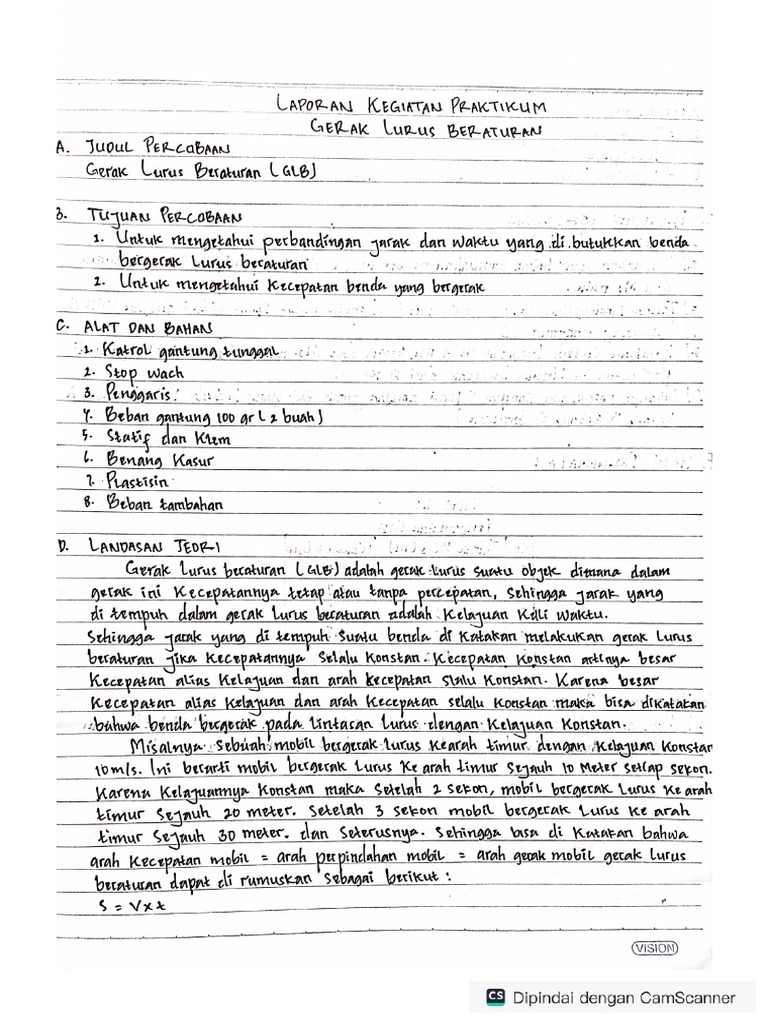 LAPORAN KEGIATAN PRAKTIKUM
GERAK LURUS BERATURAN
A. JUDUL PERCOBAAN
Gerak Lurus Beraturan (GLB)
B. TUJUAN PERCOBAAN
1. Untuk mengetahui perbandingan jarak dan waktu yang di butukkan benda
bergerak lurus beraturan
2. Untuk mengetahui Kecepatan benda yang bergerak
C. ALAT DAN BAHAN
1. Katrol gantung tunggal
2. Stop wach
3. Penggaris
4. Beban gantung 100 gr (2 buah)
5. Statif dan Klem
6. Benang Kasur
7. Plastisin
8. Beban tambahan
D. LANDASAN TEORI
Gerak Lurus beraturan (GLB) adalah gerak lurus suatu objek dimana dalam
gerak ini Kecepatannya tetap atau tanpa percepatan, sehingga jarak yang
di tempuh dalam gerak lurus beraturan adalah Kelajuan Kali Waktu.
Sehingga jarak yang di tempuh suatu benda di Katakan melakukan gerak lurus
beraturan jika Kecepatannya selalu konstan. Kecepatan Konstan artinya besar
Kecepatan alias Kelajuan dan arah kecepatan slalu Konstan. Karena besar
Kecepatan alias Kelajuan dan arah Kecepatan selalu Konstan maka bisa dikatakan
bahwa benda bergerak pada lintasan lurus dengan Kelajuan Konstan.
Misalnya sebuah mobil bergerak lurus kearah timur dengan Kelajuan Konstan
10 m/s. Ini berarti mobil bergerak lurus Ke arah timur sejauh 10 Meter setiap sekon.
Karena Kelajuannya Konstan maka setelah 2 sekon, mobil bergerak lurus Ke arah
timur sejauh 20 meter. Setelah 3 sekon mobil bergerak lurus Ke arah
timur sejauh 30 meter. dan seterusnya. Sehingga bisa di Katakan bahwa
arah Kecepatan mobil = arah perpindahan mobil = arah gerak mobil gerak lurus
beraturan dapat di rumuskan sebagai berikut :
S = V x t
VISION
CS Dipindai dengan CamScanner